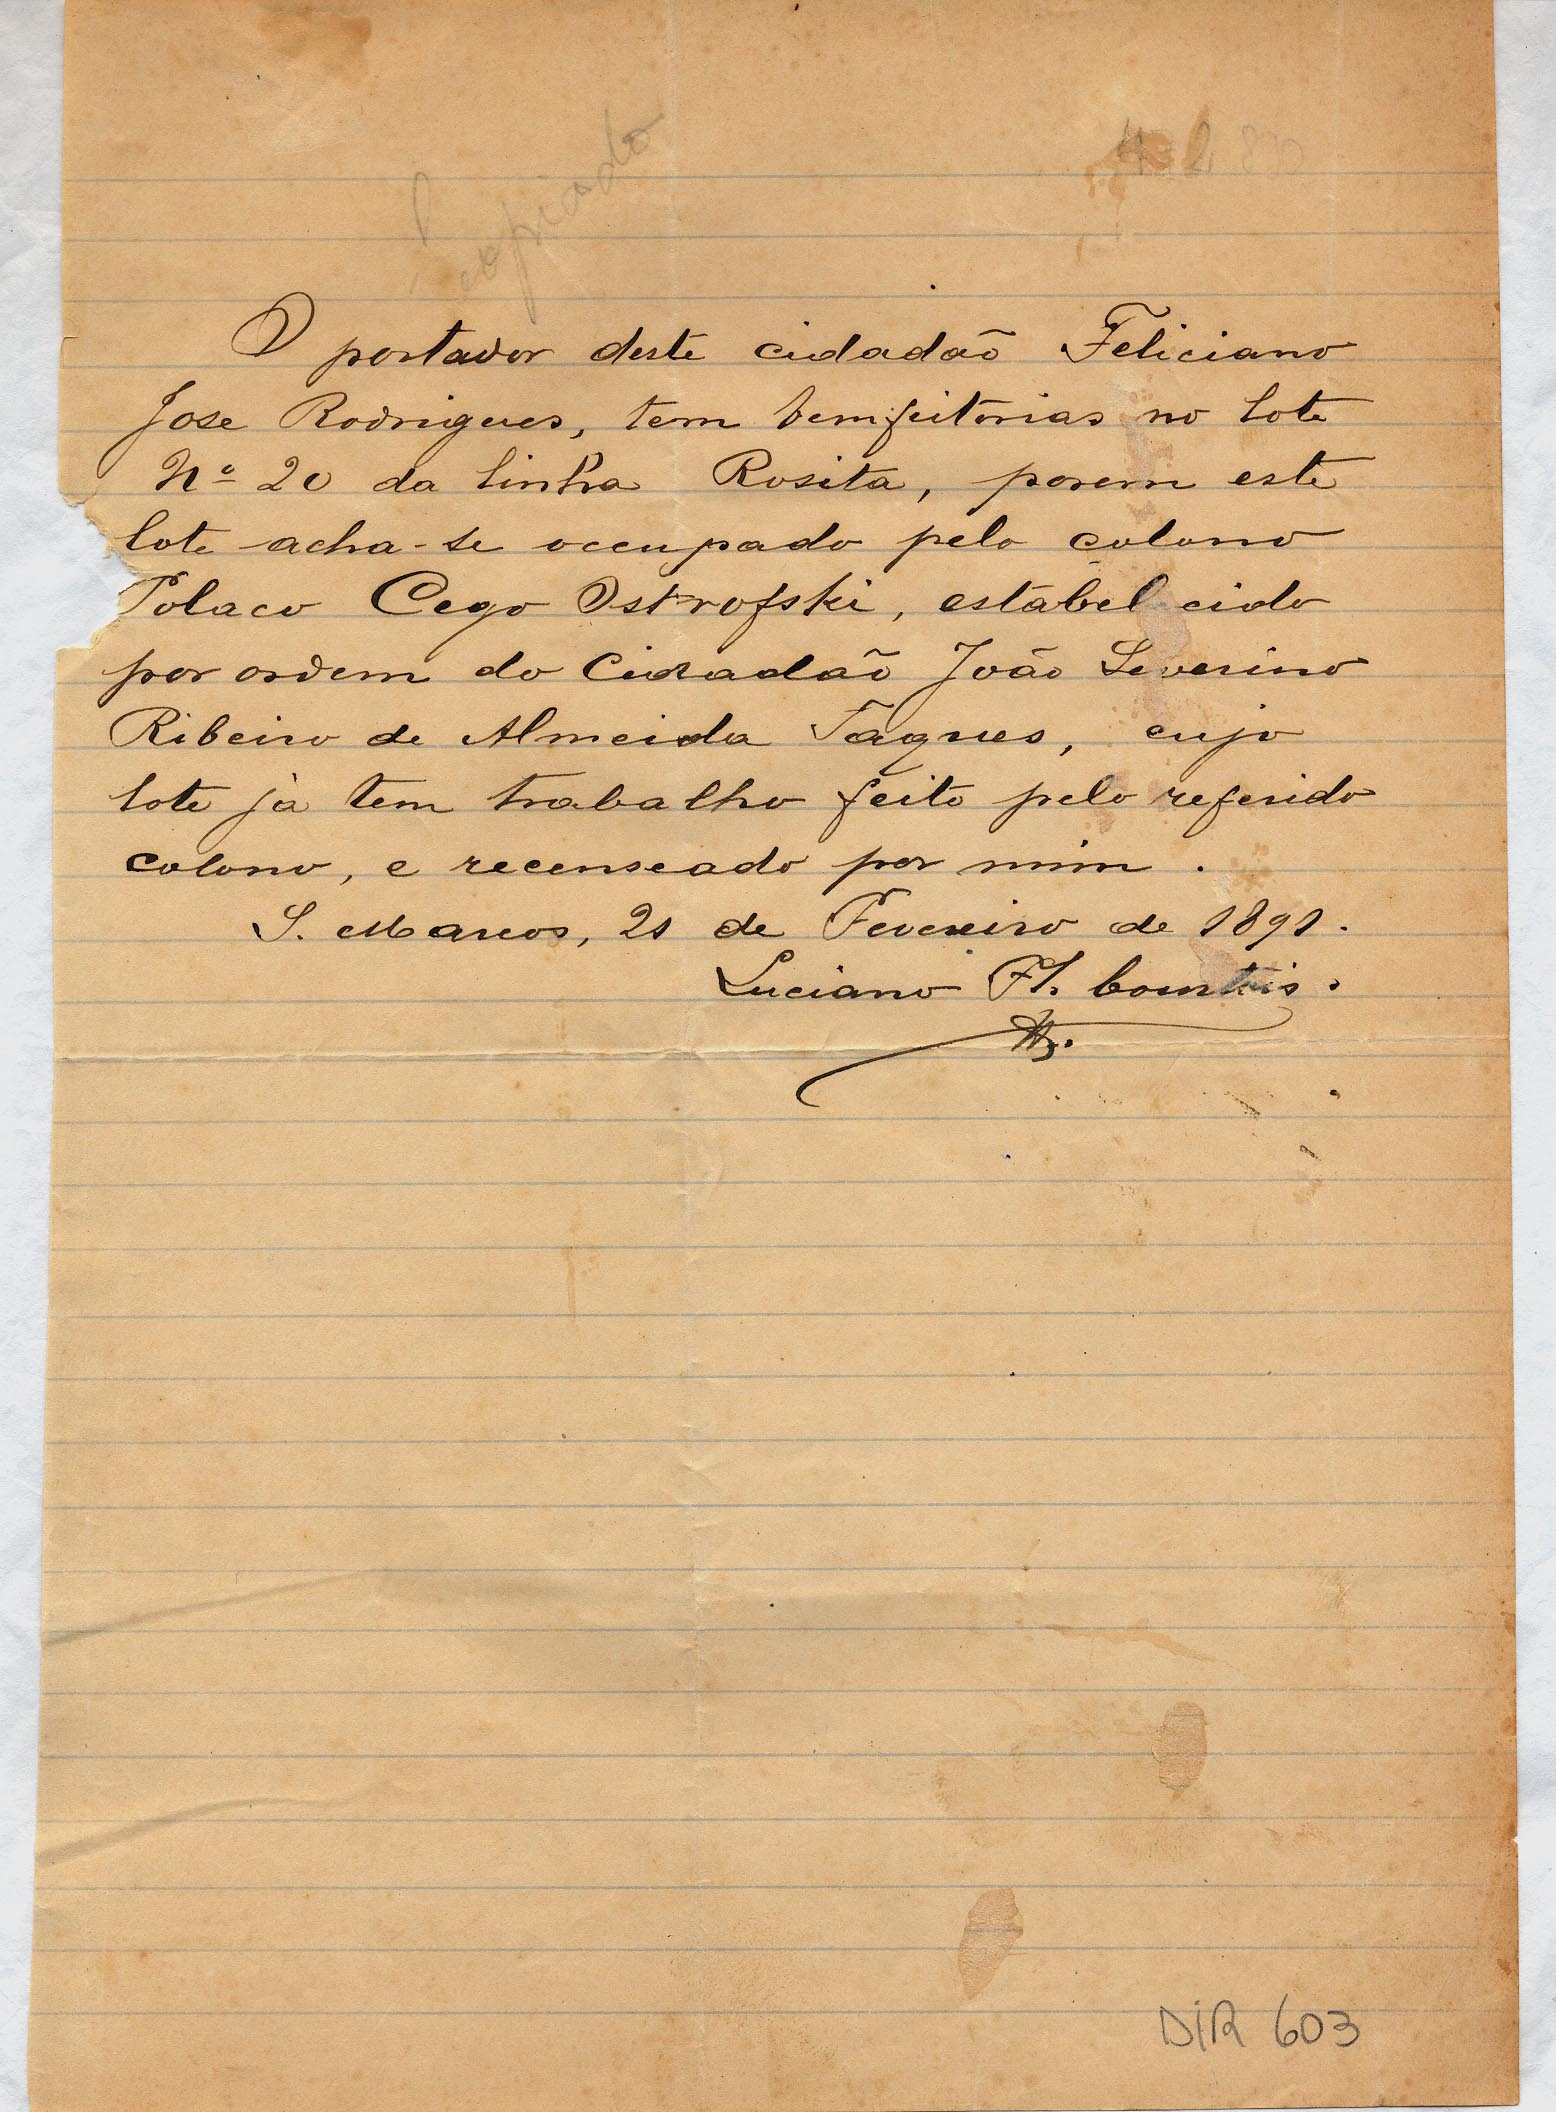 copiado
O portador deste cidadaõ Feliciano
Jose Rodrigues, tem bemfeitorias no lote
Nº 20 da linha Rosita, porem este
lote acha-se occupado pelo colono
Polaco Cego Ostrofski, estabelecido
por ordem do Cidadaõ João Severino
Ribeiro de Almeida Taques, cujo
lote já tem trabalho feito pelo referido
colono, e recenseado por mim.
S. Marcos, 21 de Fevereiro de 1891.
Luciano Fl.
DIR 603